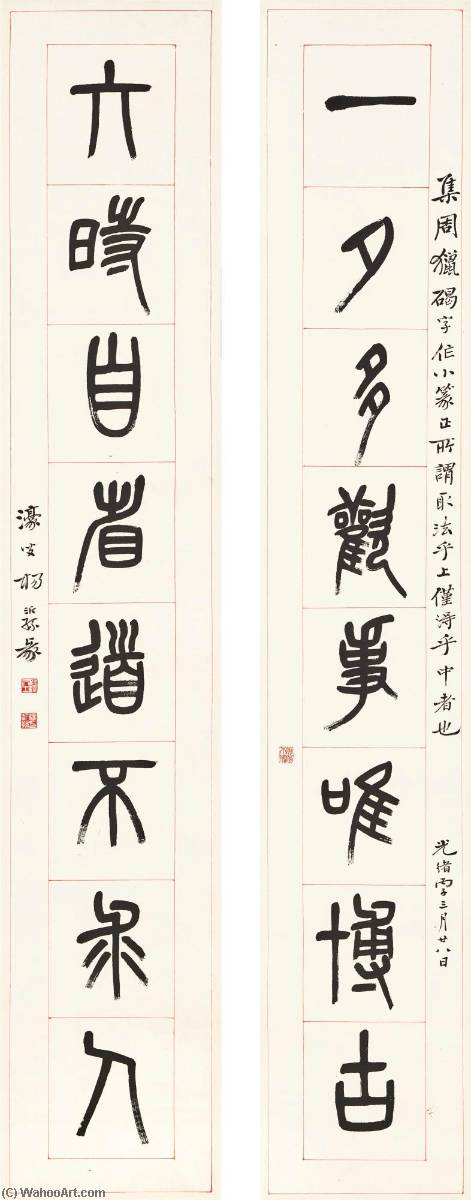 一夕多觀事唯博古
集周獵碣字作小篆正所謂取法乎上僅得乎中者也
光緒丙子三月廿八日
六時自省道不求人
濠叟楊沂孫篆
(C) WahooArt.com